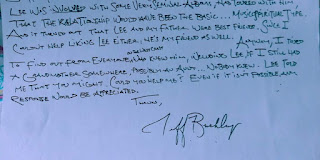 LEE WAS INVOLVED WITH SOME VERY SEMINAL ALBUMS AND TOURED WITH HIM,
THAT THE RELATIONSHIP WOULD HAVE BEEN THE BASIC... MUSIC/PRODUCER TYPE.
AND IT TURNED OUT THAT LEE AND MY FATHER WERE BEST FRIENDS. SINCE I
COULDN'T HELP LIKING LEE EITHER, HE'S MY FRIEND AS WELL. ANYWAY I TRIED
TO FIND OUT FROM EVERYONE WHO KNEW HIM, INCLUDING LEE IF I STILL HAD
A GRANDMOTHER SOMEWHERE, POSSIBLY AN AUNT. NOBODY KNEW. LEE TOLD
ME THAT YOU MIGHT. COULD YOU HELP ME? EVEN IF IT ISN'T POSSIBLE, ANY
RESPONSE WOULD BE APPRECIATED.
THANKS,
Jeff Buckley